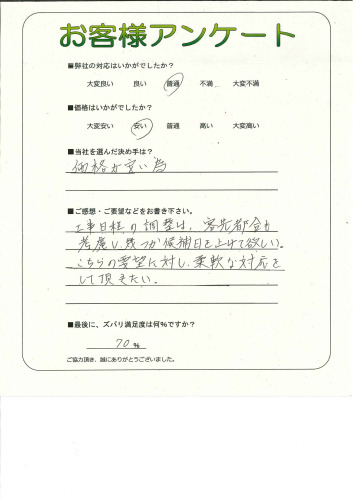 お客様アンケート
■弊社の対応はいかがでしたか？
大変良い　良い　普通　不満　大変不満
■価格はいかがでしたか？
大変安い　安い　普通　高い　大変高い
■当社を選んだ決め手は？
価格が安い為
■ご感想・ご要望などをお書き下さい。
工事日程の調整は、客先都合も
考慮し、幾つか候補日を上げて欲しい。
こちらの要望に対し、柔軟な対応を
して頂きたい。
■最後に、ズバリ満足度は何％ですか？
70 ％
ご協力頂き、誠にありがとうございました。